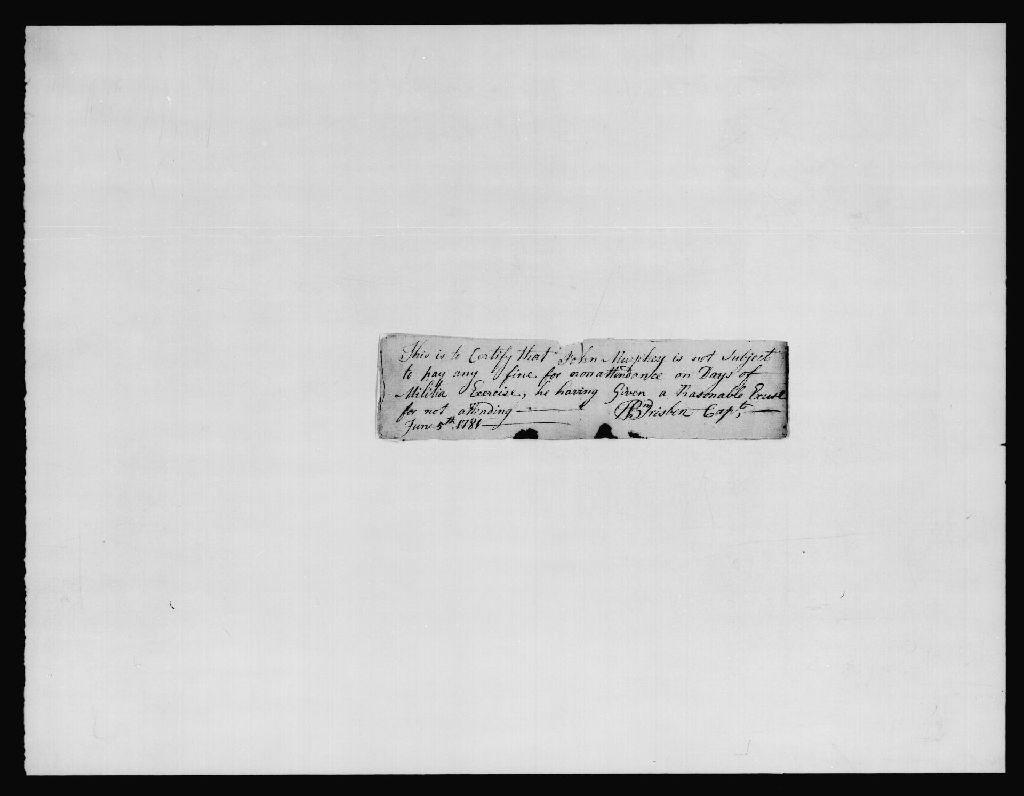 This is to Certify that John Murphey is not Subject
to pay any fine for nonattendance on Days of
Militia Exercise, he having Given a Reasonable Excuse
for not attending Capt,
June 5th. 1781